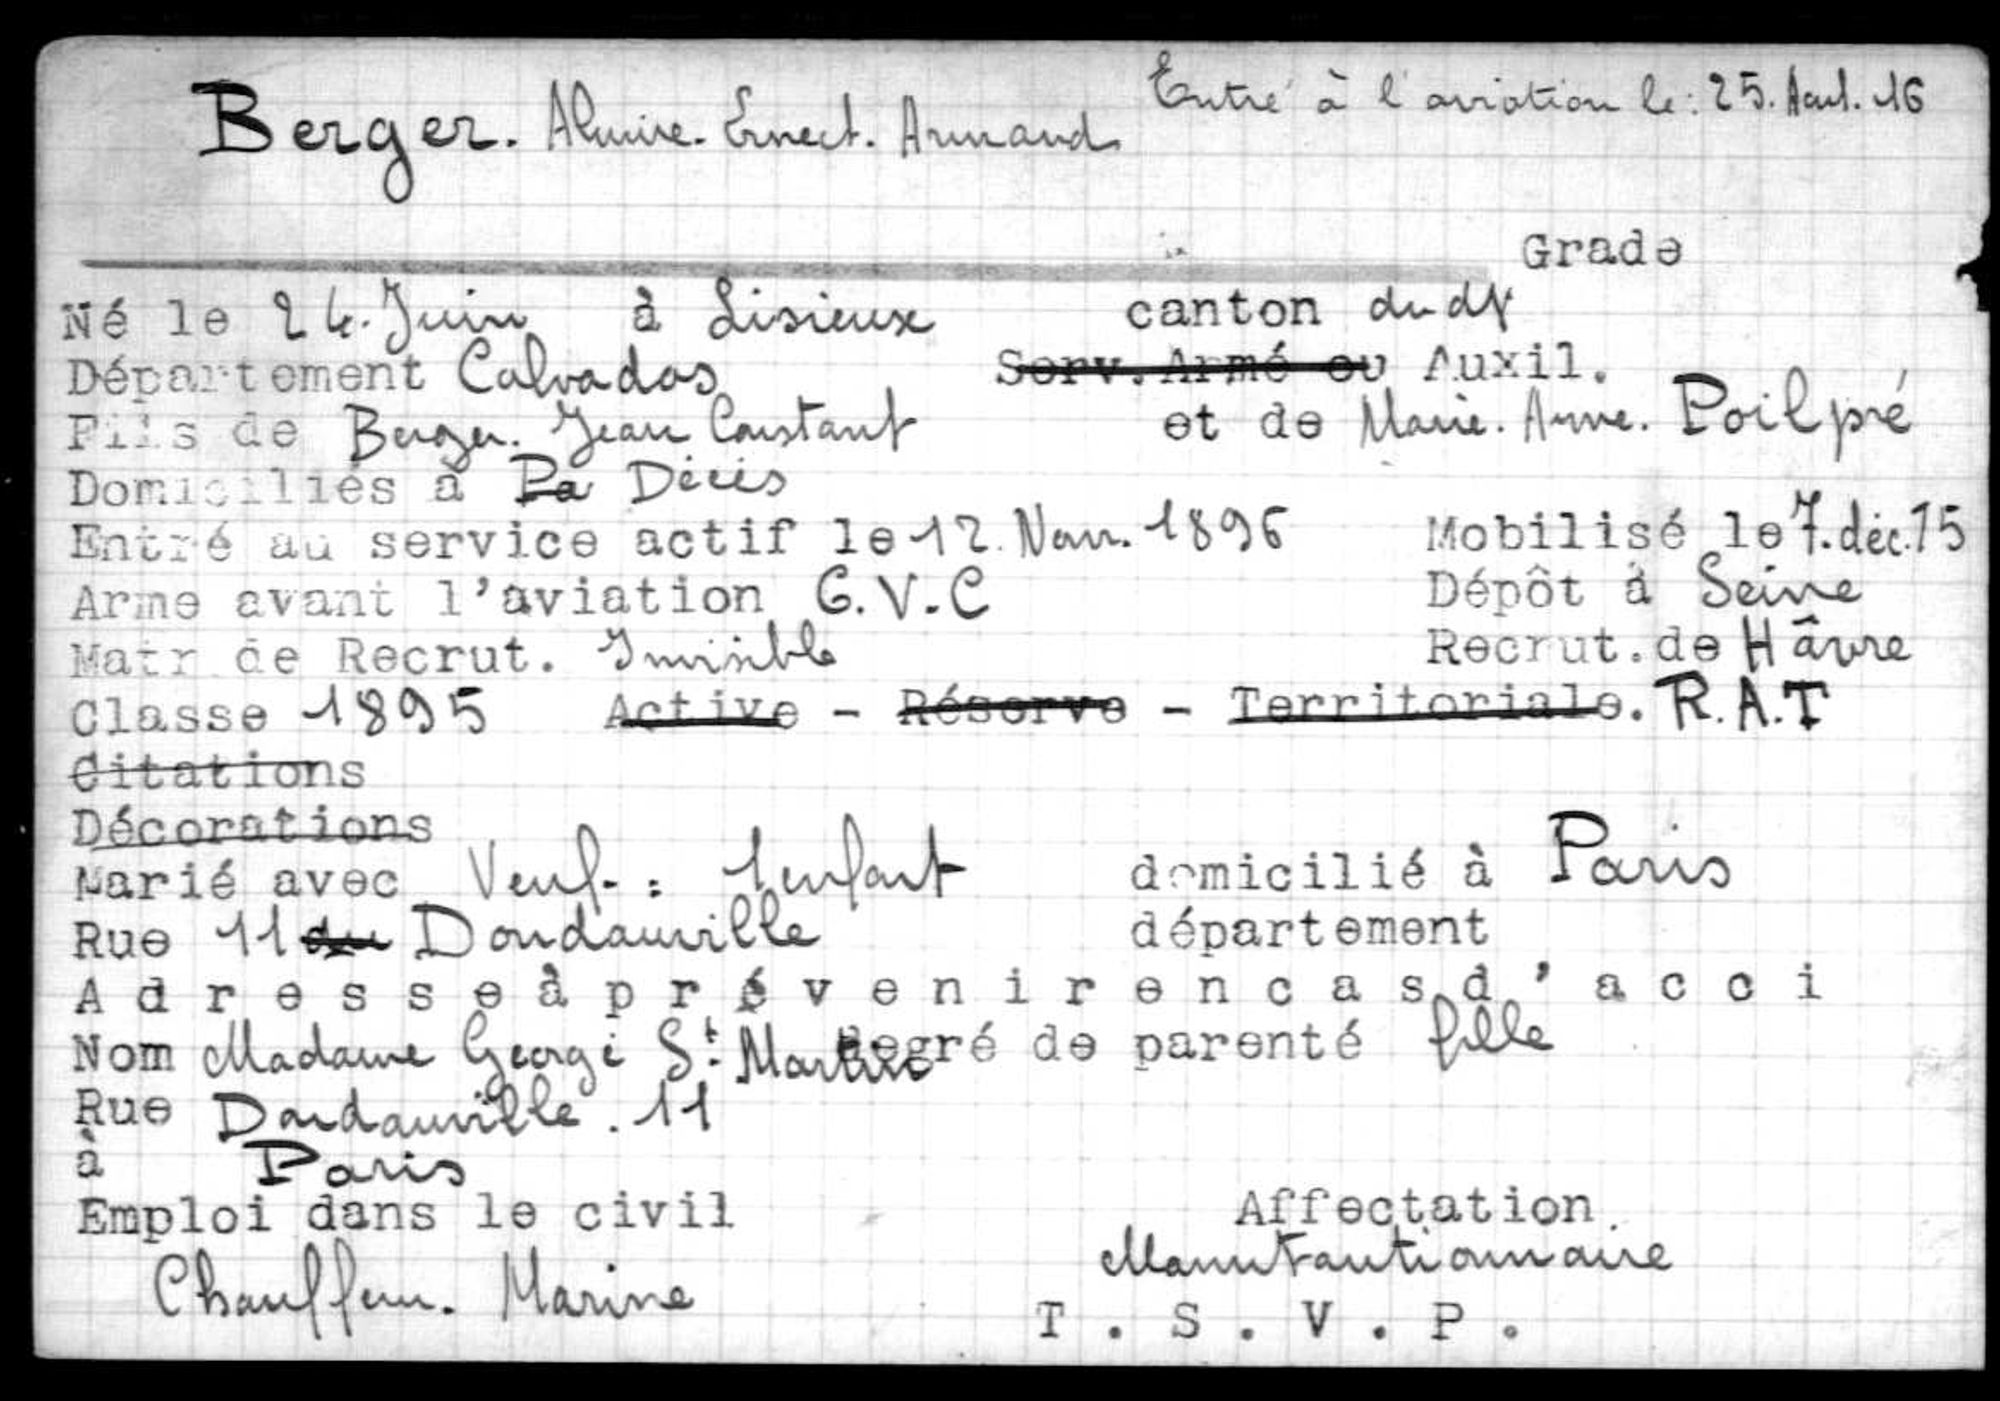 Berger. Almire. Ernest. Armand Entré à l'aviation le : 25. Aout. 16
Grade
Né le 24. Juin à Lisieux canton dudt
Département Calvados Serv. Armé ou Auxil.
Fils de Berger. Jean Constant et de Marie. Anne. Poilpré
Domiciliés à Pa Décès
Entré au service actif le 12. Nov. 1896 Mobilisé le 7. déc. 15
Arme avant l'aviation G.V.C Dépôt à Seine
Matr de Recrut. Invisible Recrut. de Hâvre
Classe 1895 Active - Réserve - Territoriale. R.A.T
Citations
Décorations
Marié avec Veuf - : 1 enfant domicilié à Paris
Rue 11 du Doudauville département
Adresse à prévenir en cas d'acci
Nom Madame George St Martin degré de parenté fille
Rue Doudauville. 11
à Paris
Emploi dans le civil Affectation
Chauffeur. Marine Manutantionnaire
T.S.V.P.